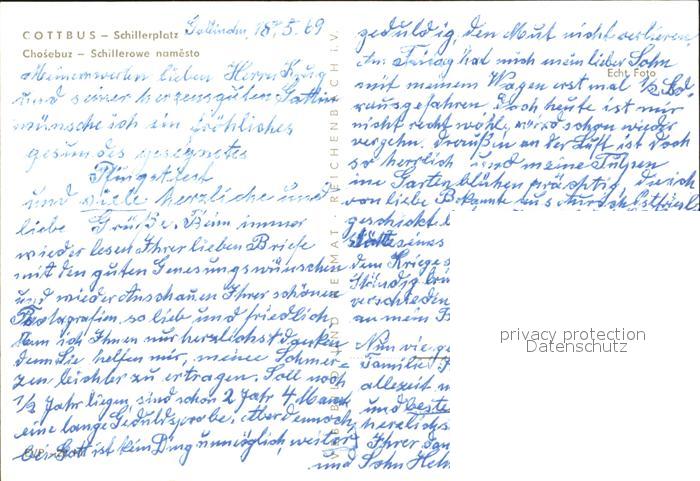 COTTBUS – Schillerplatz
Chośebuz – Schillerowe naměsto
18.5.69
Meinem werten lieben Herrn Krug
und seiner herzensguten Gattin
wünsche ich ein fröhliches
gesundes gesegnetes
Pfingstfest
und viele herzliche und
liebe Grüße. Beim immer
wieder lesen Ihrer lieben Briefe
mit den guten Genesungswünschen
und wieder Anschauen Ihrer schönen
Fotografien so lieb und friedlich,
kann ich Ihnen nur herzlichst danken
denn Sie helfen mir, meine Schmer=
zen leichter zu ertragen. Soll noch
½ Jahr liegen, sind schon 2 Jahr 4 Monat
eine lange Geduldsprobe. Aber dennoch
bei Gott ist kein Ding unmöglich, weiter
und Sohn
BILD UND HEIMAT REICHENBACH i. V.
geduldig, den Mut nicht verlieren
Am Freitag hat mich mein lieber Sohn
Echt Foto
mit meinem Wagen erst mal ½ Std
rausgefahren. Doch heute ist mir
nicht recht wohl, wird schon wieder
vergehn. Draußen an der Luft ist doch
so herrlich und meine Tulpen
im Garten blühen prächtig, die ich
von liebe Bekannte aus
geschickt
dem Krieges
Ständig
verschieden
an mein
Nun vie
Familie
allezeit
und beste
herzlichs
Ihrer
privacy protection
Datenschutz